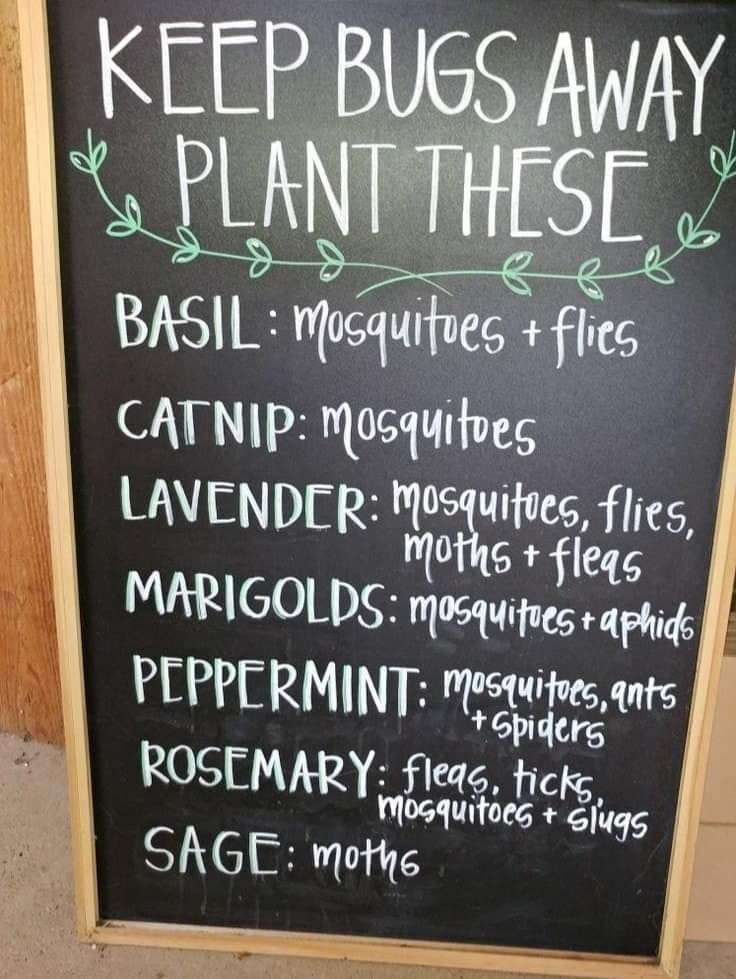 KEEP BUGS AWAY
PLANT THESE
BASIL: mosquitoes + flies
CATNIP: mosquitoes
LAVENDER: mosquitoes, flies,
moths + fleas
MARIGOLDS: mosquitoes + aphids
PEPPERMINT: mosquitoes, ants
+ spiders
ROSEMARY: fleas, ticks,
mosquitoes + slugs
SAGE: moths